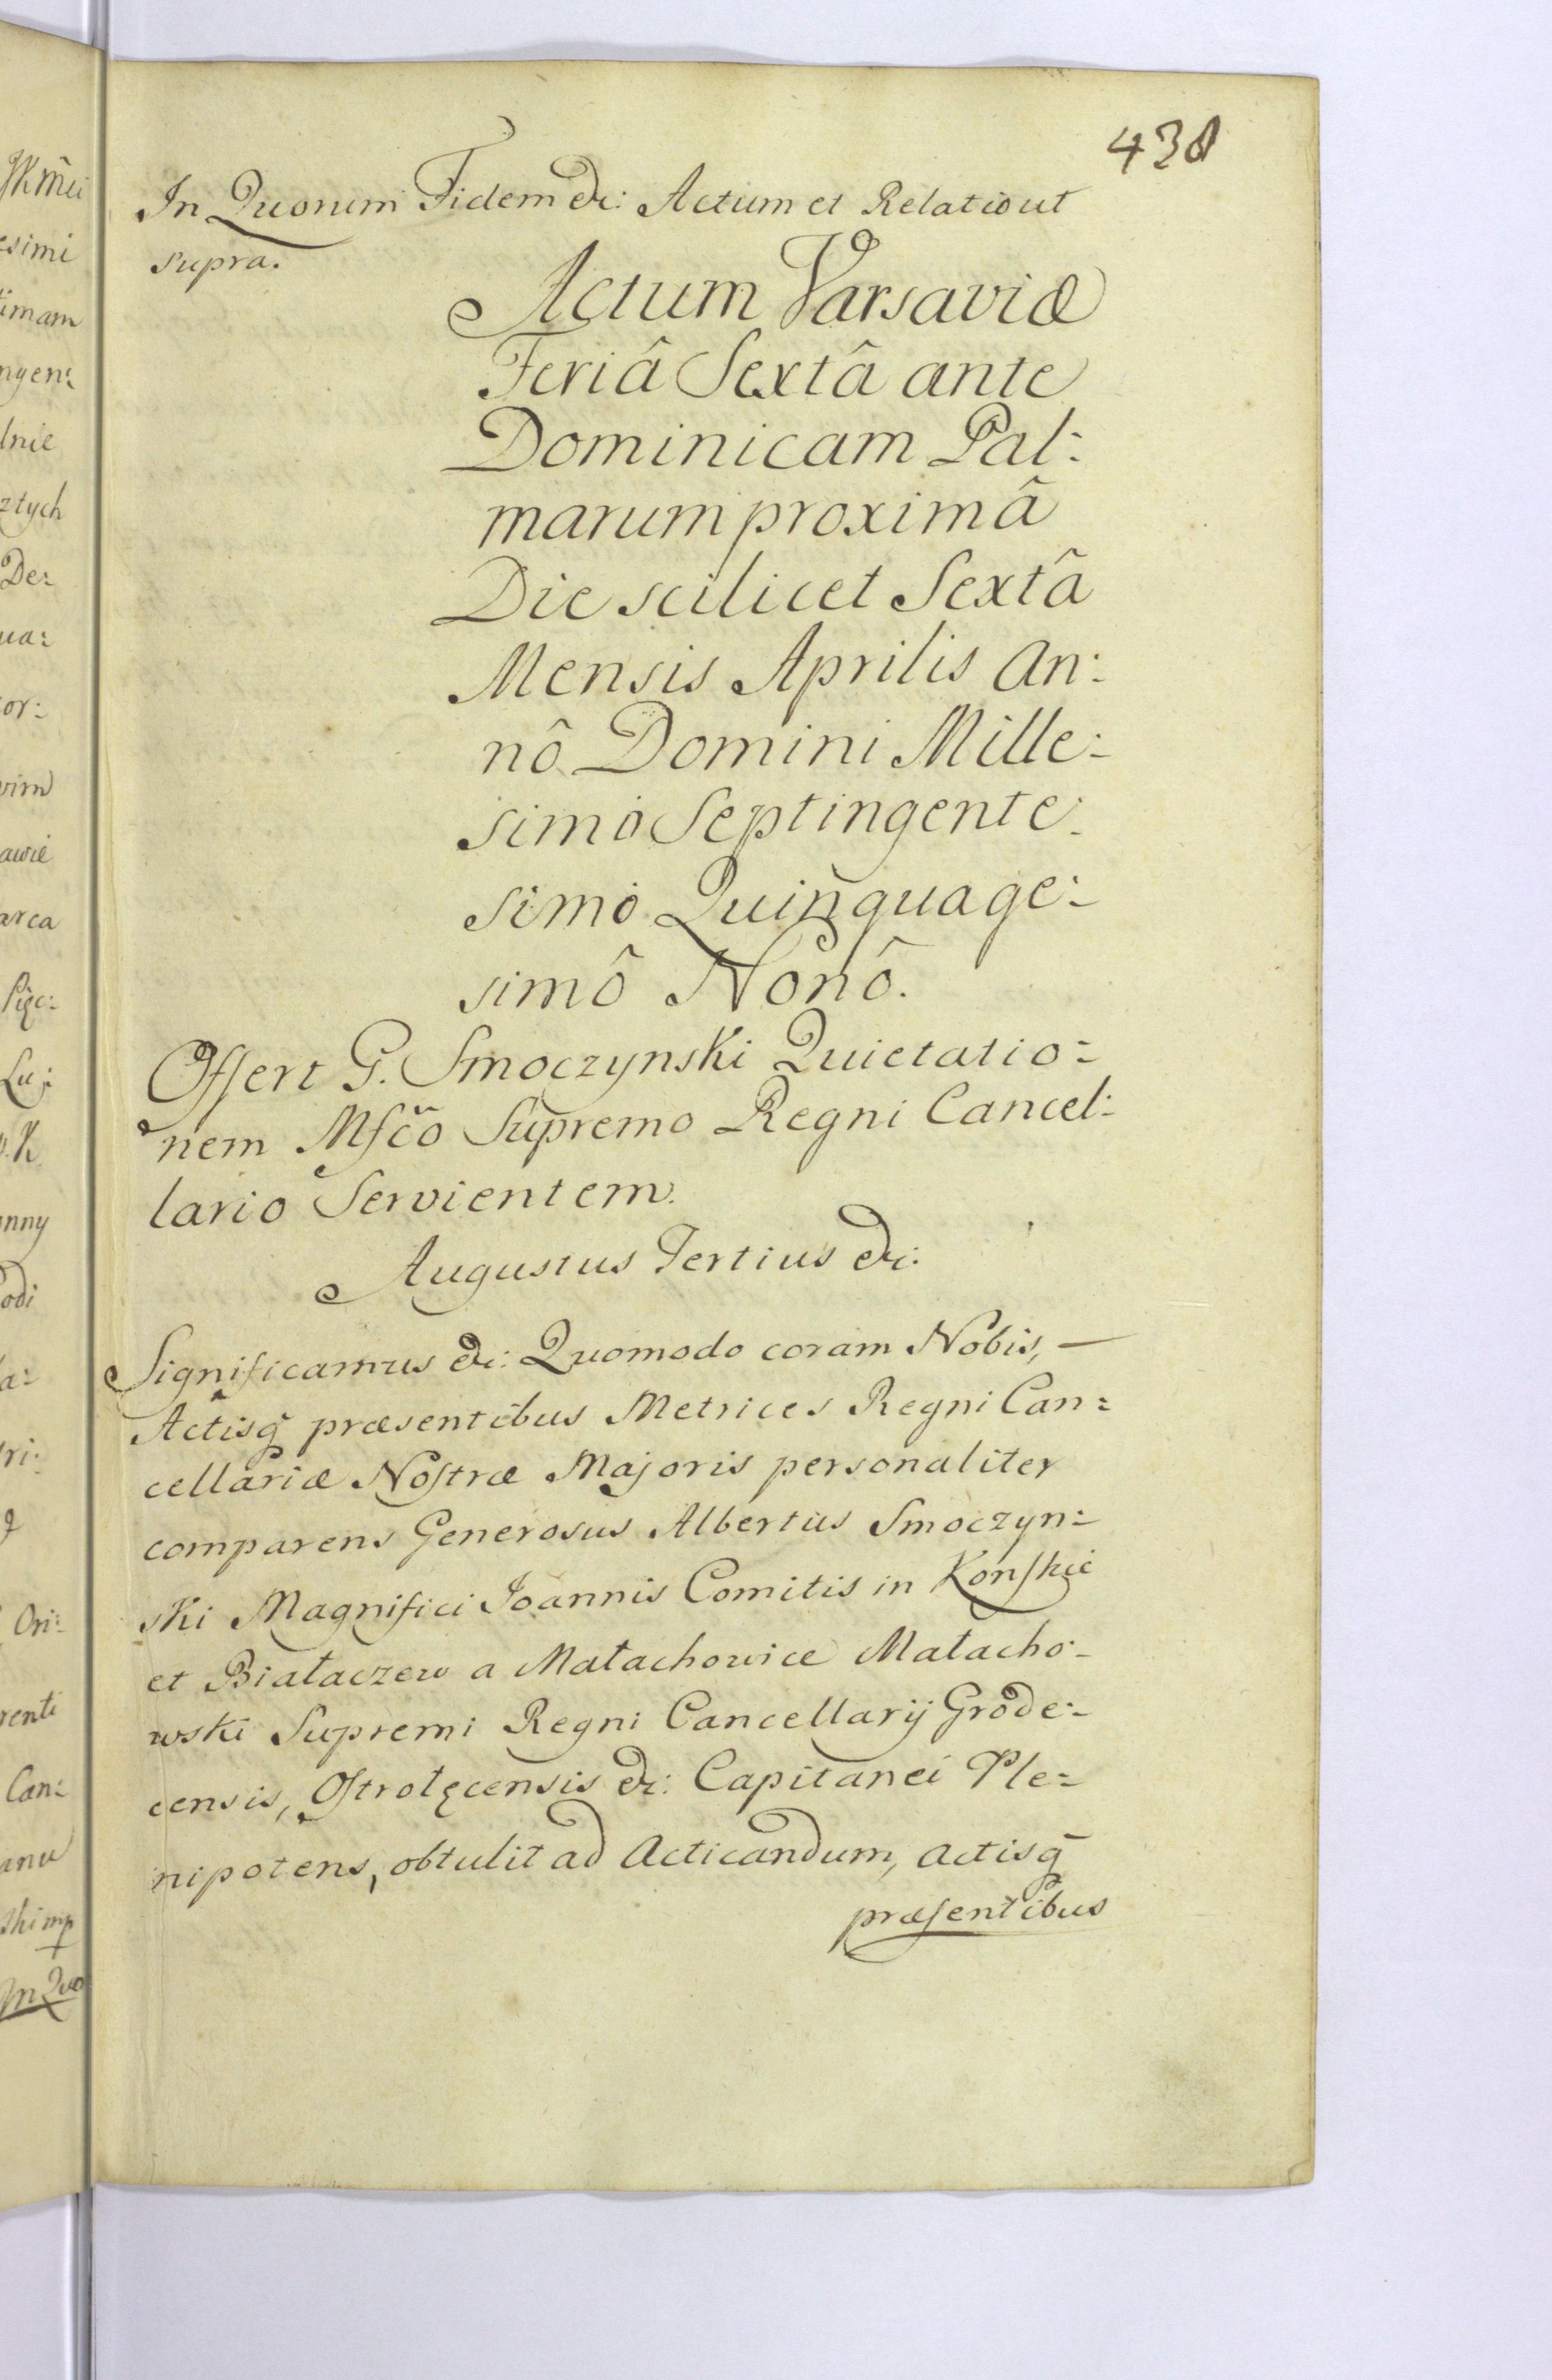 438
In Quorum Fidem &c: Actum et Relatio ut
supra.
Actum Varsaviæ
Feriâ Sextâ ante
Dominicam Pal:
marum proximâ
Die scilicet Sextâ
Mensis Aprilis An:
nô Domini Mille:
simo Septingente:
simo Quinquage:
simô Nonô.
Offert G. Smoczynski Quietatio:
nem Mfco Supremo Regni Cancel:
lario Servientem.
Augustus Tertius &c:
Significamus &c: Quomodo coram Nobis, —
Actisq̃ præsentibus Metrices Regni Can:
cellariæ Nostræ Majoris personaliter
comparens Generosus Albertus Smoczyn:
ski Magnifici Joannis Comitis in Konskie
et Białaczew a Małachowice Małacho:
wski Supremi Regni Cancellarij Grode:
censis, Ostrołęcensis &c: Capitanei Ple:
nipotens, obtulit ad Acticandum, actisq̃
præsentibus